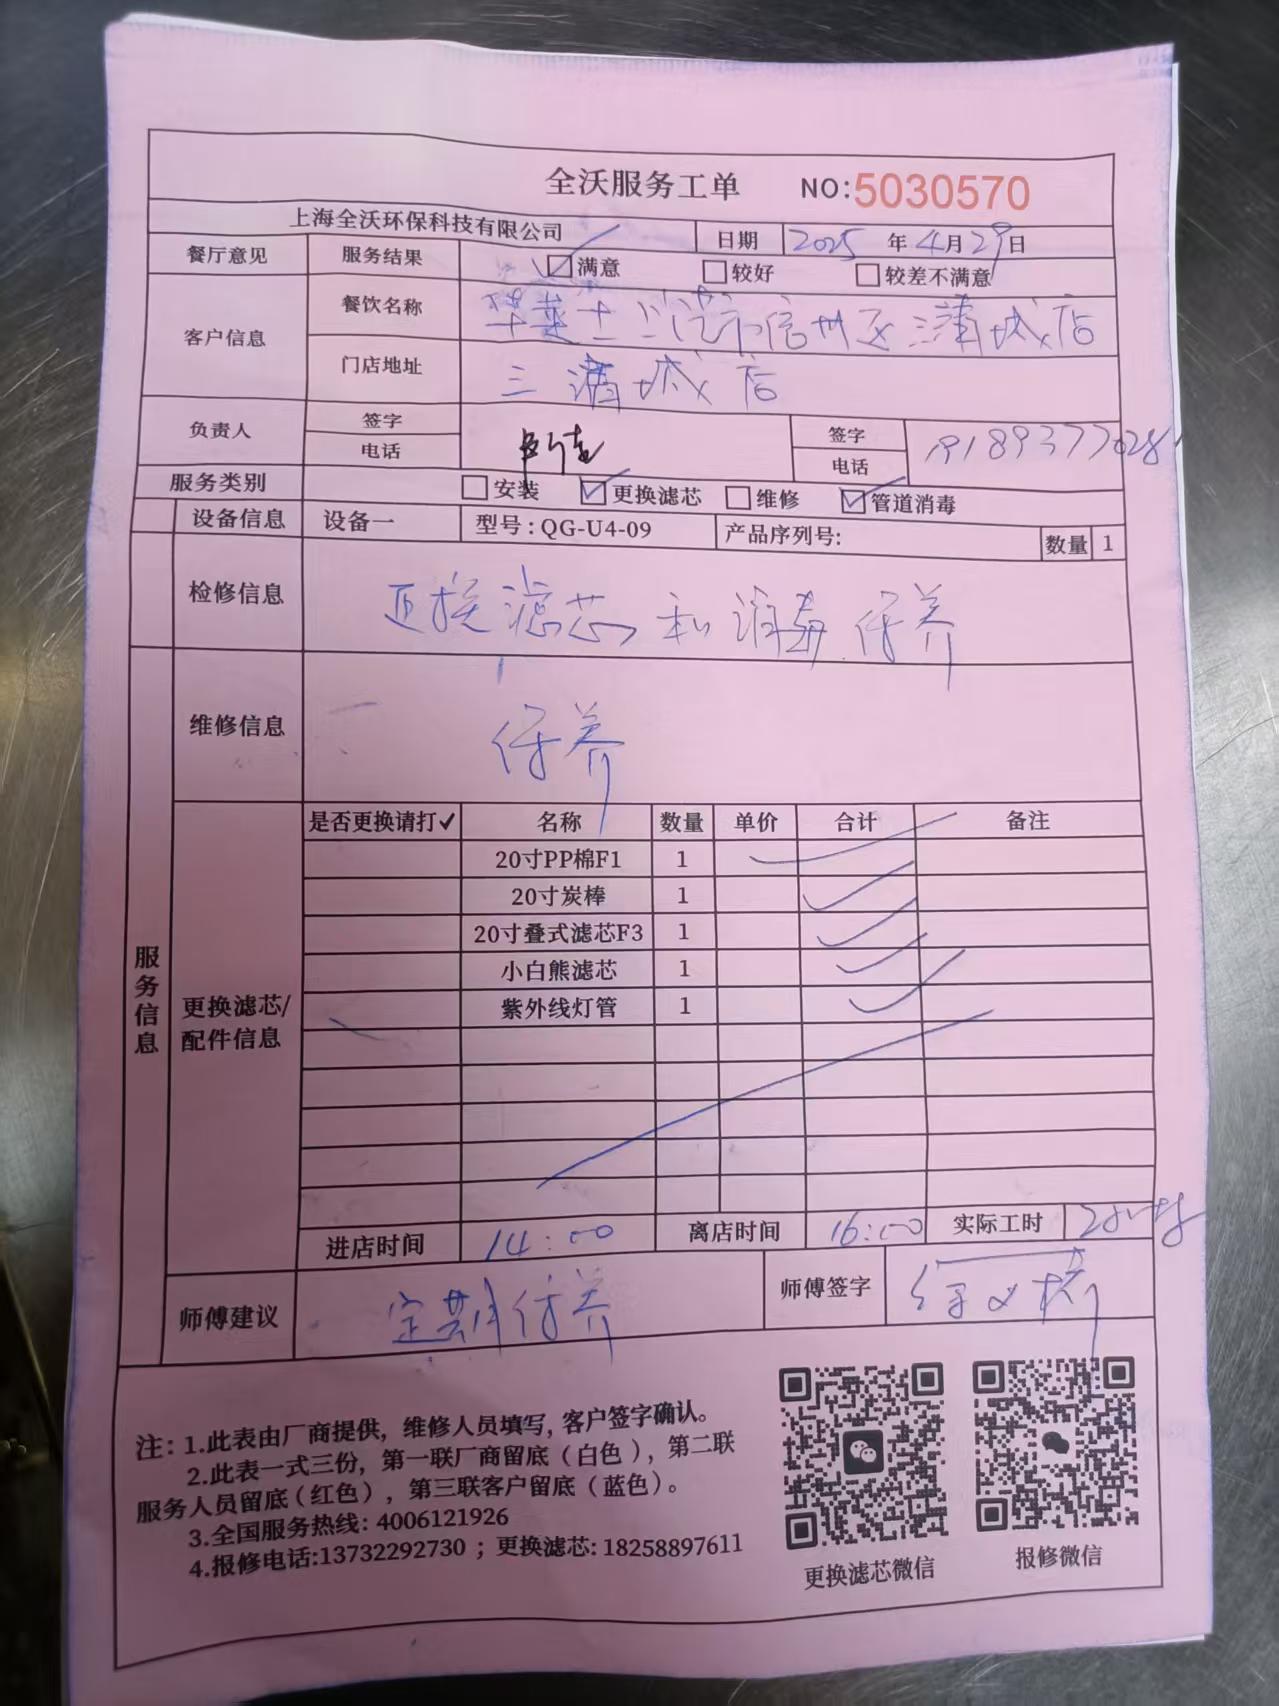 全沃服务工单 NO:5030570
上海全沃环保科技有限公司 日期 2025 年 4月 29日
餐厅意见 服务结果 满意 较好 较差不满意
客户信息 餐饮名称 华莱士 信州区三清城店
门店地址 三清城店
负责人 签字 签字
电话 电话 19189377028
服务类别 安装 更换滤芯 维修 管道消毒
设备信息 设备一 型号:QG-U4-09 产品序列号: 数量 1
检修信息 更换滤芯和消毒保养
维修信息 保养
服务信息
更换滤芯/
配件信息
是否更换请打✓ 名称 数量 单价 合计 备注
20寸PP棉F1 1
20寸炭棒 1
20寸叠式滤芯F3 1
小白熊滤芯 1
紫外线灯管 1
进店时间 14:00 离店时间 16:00 实际工时 2小时
师傅建议 定期保养 师傅签字
注: 1.此表由厂商提供, 维修人员填写, 客户签字确认。
2.此表一式三份, 第一联厂商留底(白色), 第二联
服务人员留底(红色), 第三联客户留底(蓝色)。
3.全国服务热线: 4006121926
4.报修电话:13732292730 ; 更换滤芯: 18258897611
更换滤芯微信 报修微信